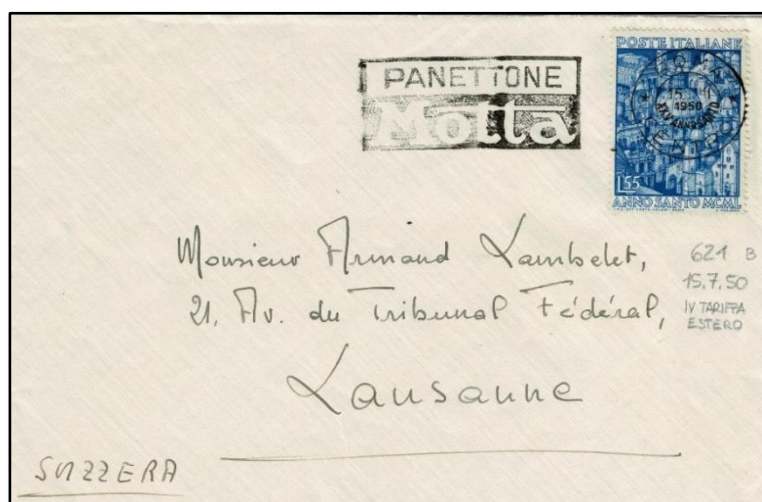 PANETTONE
Motta
POSTE ITALIANE
1950
L55
ANNO SANTO MCML
Monsieur Armand Lambelet,
21. Av. du Tribunal Fédéral,
Lausanne
SVIZZERA
621 B
15.7.50
IV TARIFFA
ESTERO